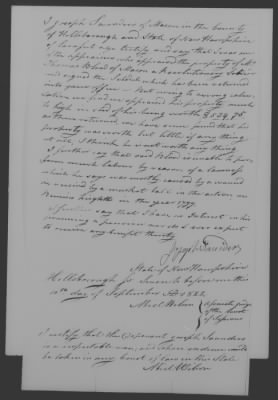 I Joseph Saunders of Mason in the County
of Hillsborough and State of New Hampshire
of lawful age testify and say that I was one
of the appraisers who appraised the property of Mr
Thomas Blood of Mason a Revolutionary Soldier
and signed the Schedule which has been returned
into your office But owing to
we find we appraised his property much
to high in stead of his being worth $524,75
as then returned we have since found that his
property was worth but little if any thing
at all I think he is not worth any thing
I further say that said Blood is unable to per
form much labour by reason of a lameness
which he says was mostly caused by a wound
received by a musket ball in the action on
heights in the year 1777
I further say that I have no Interest in his
a pension nor do I ever expect
to receive any benefit thereby
Joseph Saunders
State of New Hampshire
Hillsborough ss Sworn to before me this
day of September AD 1822
Abiel Wilson
of the Court
of Sessions
I certify that the deponent Joseph Saunders
is a respectable man, and whose evidence will
be taken in any Court of law in this State
Abiel Wilson